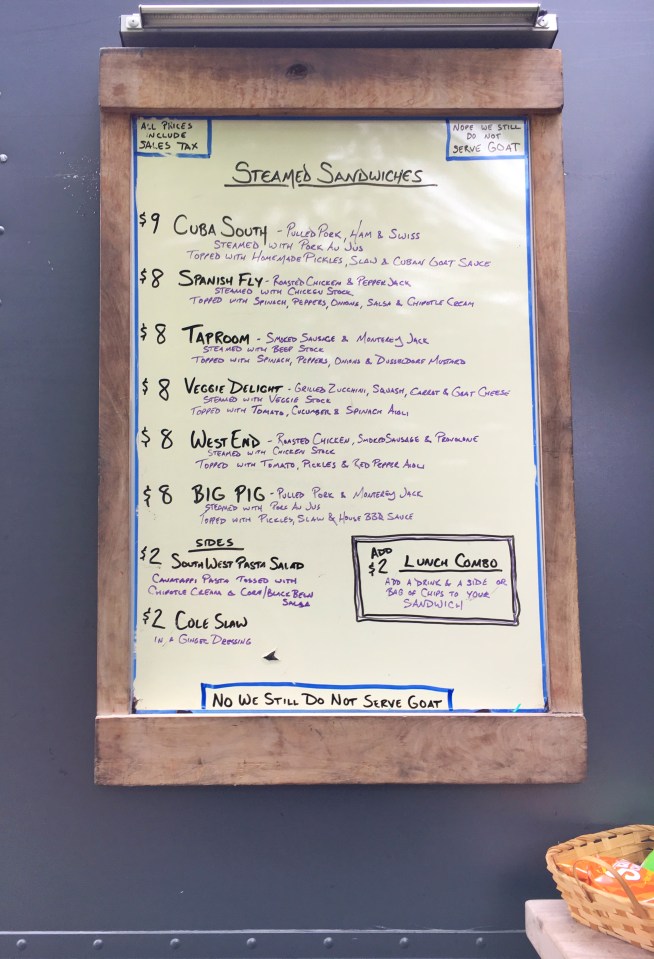 ALL PRICES
INCLUDE
SALES TAX
NOPE WE STILL
DO NOT
SERVE GOAT
STEAMED SANDWICHES
$9 CUBA SOUTH - PULLED PORK, HAM & SWISS
STEAMED WITH PORK AU JUS
TOPPED WITH HOMEMADE PICKLES, SLAW & CUBAN GOAT SAUCE
$8 SPANISH FLY - ROASTED CHICKEN & PEPPER JACK
STEAMED WITH CHICKEN STOCK
TOPPED WITH SPINACH, PEPPERS, ONIONS, SALSA & CHIPOTLE CREAM
$8 TAPROOM - SMOKED SAUSAGE & MONTEREY JACK
STEAMED WITH BEEF STOCK
TOPPED WITH SPINACH, PEPPERS, ONIONS & DUSSELDORF MUSTARD
$8 VEGGIE DELIGHT - GRILLED ZUCCHINI, SQUASH, CARROT & GOAT CHEESE
STEAMED WITH VEGGIE STOCK
TOPPED WITH TOMATO, CUCUMBER & SPINACH AIOLI
$8 WEST END - ROASTED CHICKEN, SMOKED SAUSAGE & PROVOLONE
STEAMED WITH CHICKEN STOCK
TOPPED WITH TOMATO, PICKLES & RED PEPPER AIOLI
$8 BIG PIG - PULLED PORK & MONTEREY JACK
STEAMED WITH PORK AU JUS
TOPPED WITH PICKLES, SLAW & HOUSE BBQ SAUCE
SIDES
$2 SOUTHWEST PASTA SALAD
CAVATAPPI PASTA TOSSED WITH
CHIPOTLE CREAM & CORN/BLACK BEAN
SALSA
$2 COLE SLAW
IN A GINGER DRESSING
ADD
$2 LUNCH COMBO
ADD A DRINK & A SIDE OR
BAG OF CHIPS TO YOUR
SANDWICH
NO WE STILL DO NOT SERVE GOAT